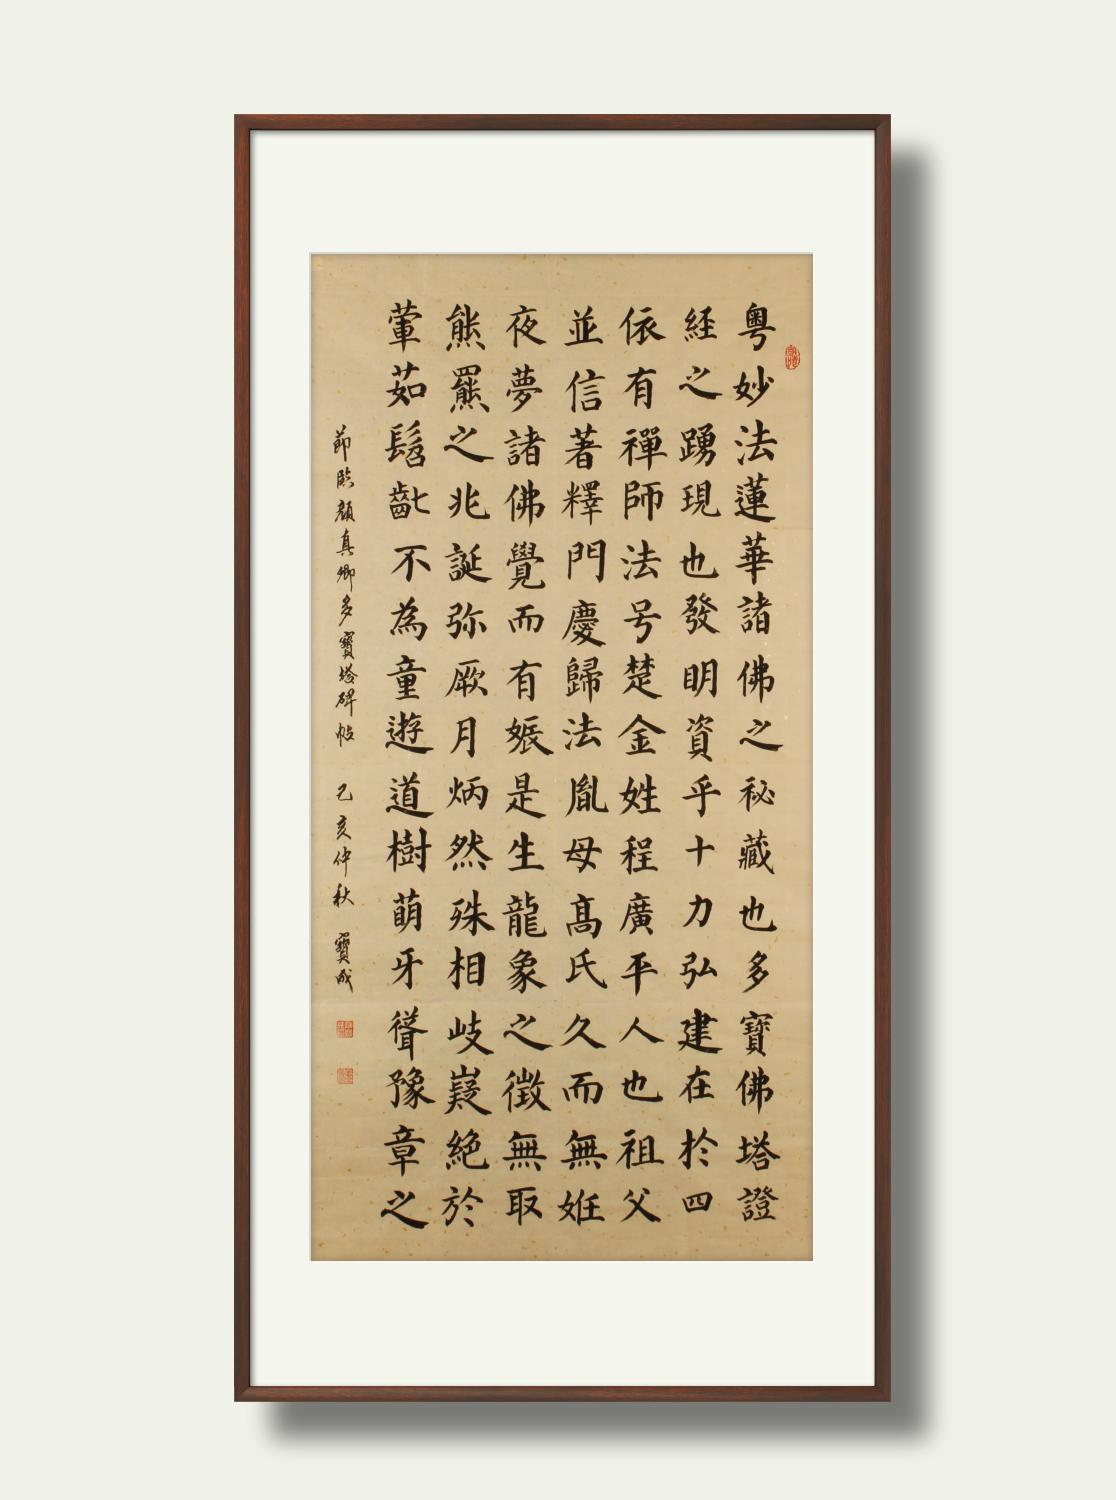 粤妙法蓮華諸佛之秘藏也多寶佛塔證
経之踴現也發明資乎十力弘建在扵四
依有禪師法号楚金姓程廣平人也祖父
並信著釋門慶歸法胤母髙氏久而無姙
夜夢諸佛覺而有娠是生龍象之徵無取
熊羆之兆誕弥厥月炳然殊相岐嶷絶於
葷茹髫齔不為童遊道樹萌牙聳豫章之
節臨顏真卿多寶塔碑帖 己亥仲秋 寶成